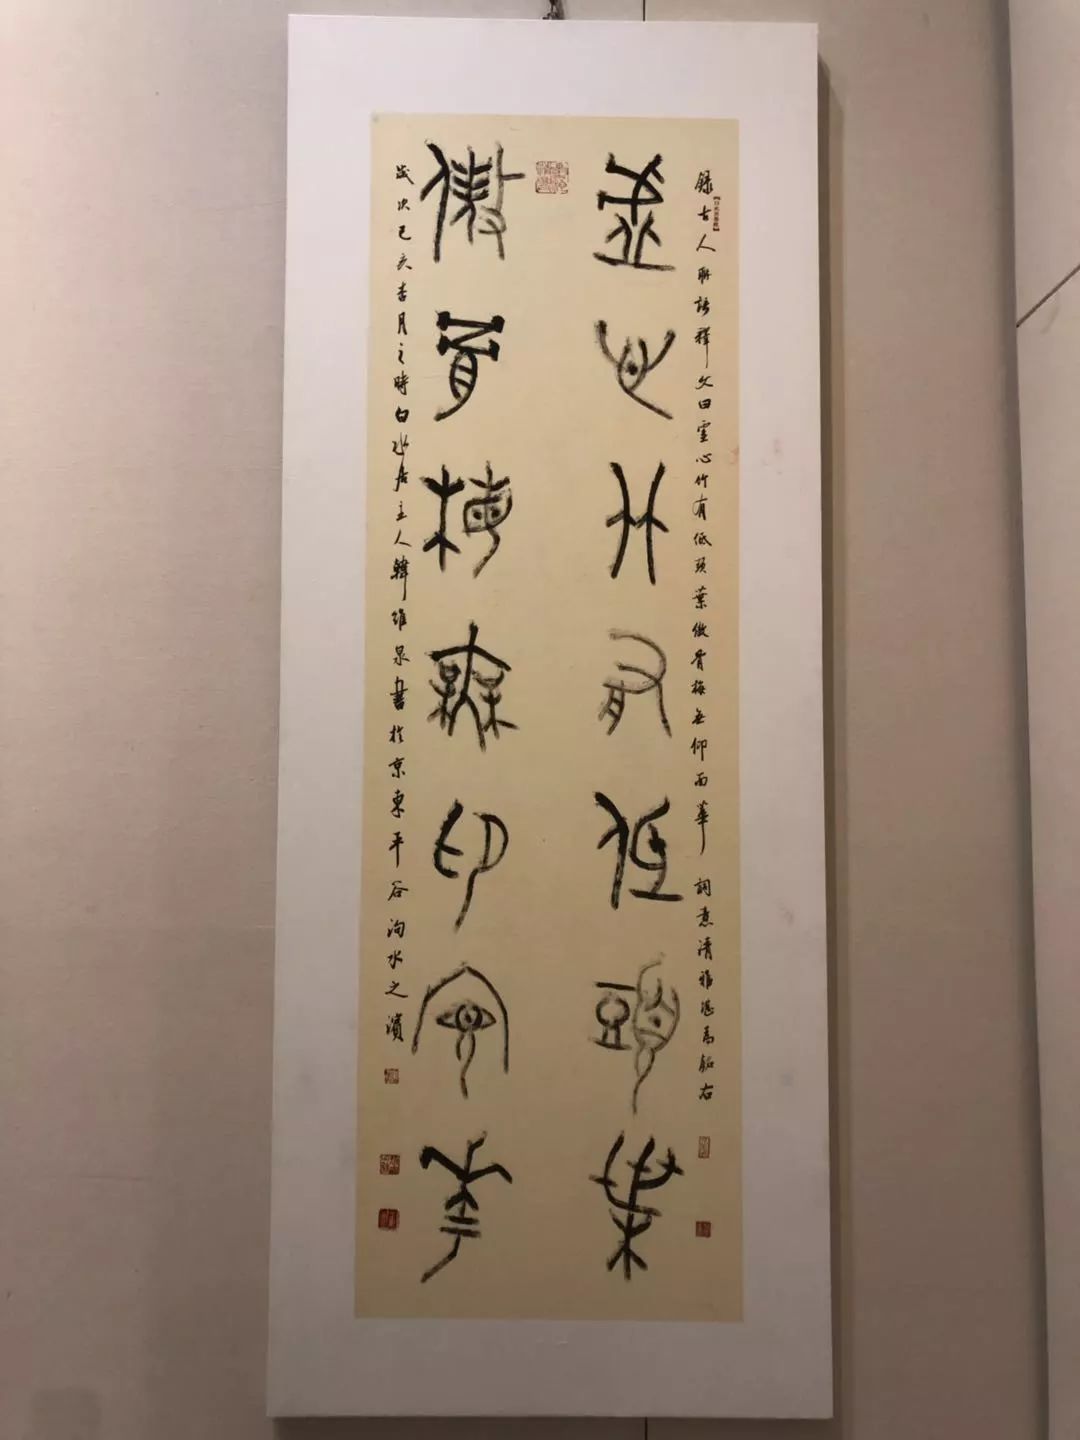 錄古人聯語釋文曰虛心竹有低頭葉傲骨梅無仰面華 詞意清雅
虛心竹有低頭葉
傲骨梅無仰面華
歲次己亥杏月之時白水居主人韓維泉書於京東平谷泃水之濱